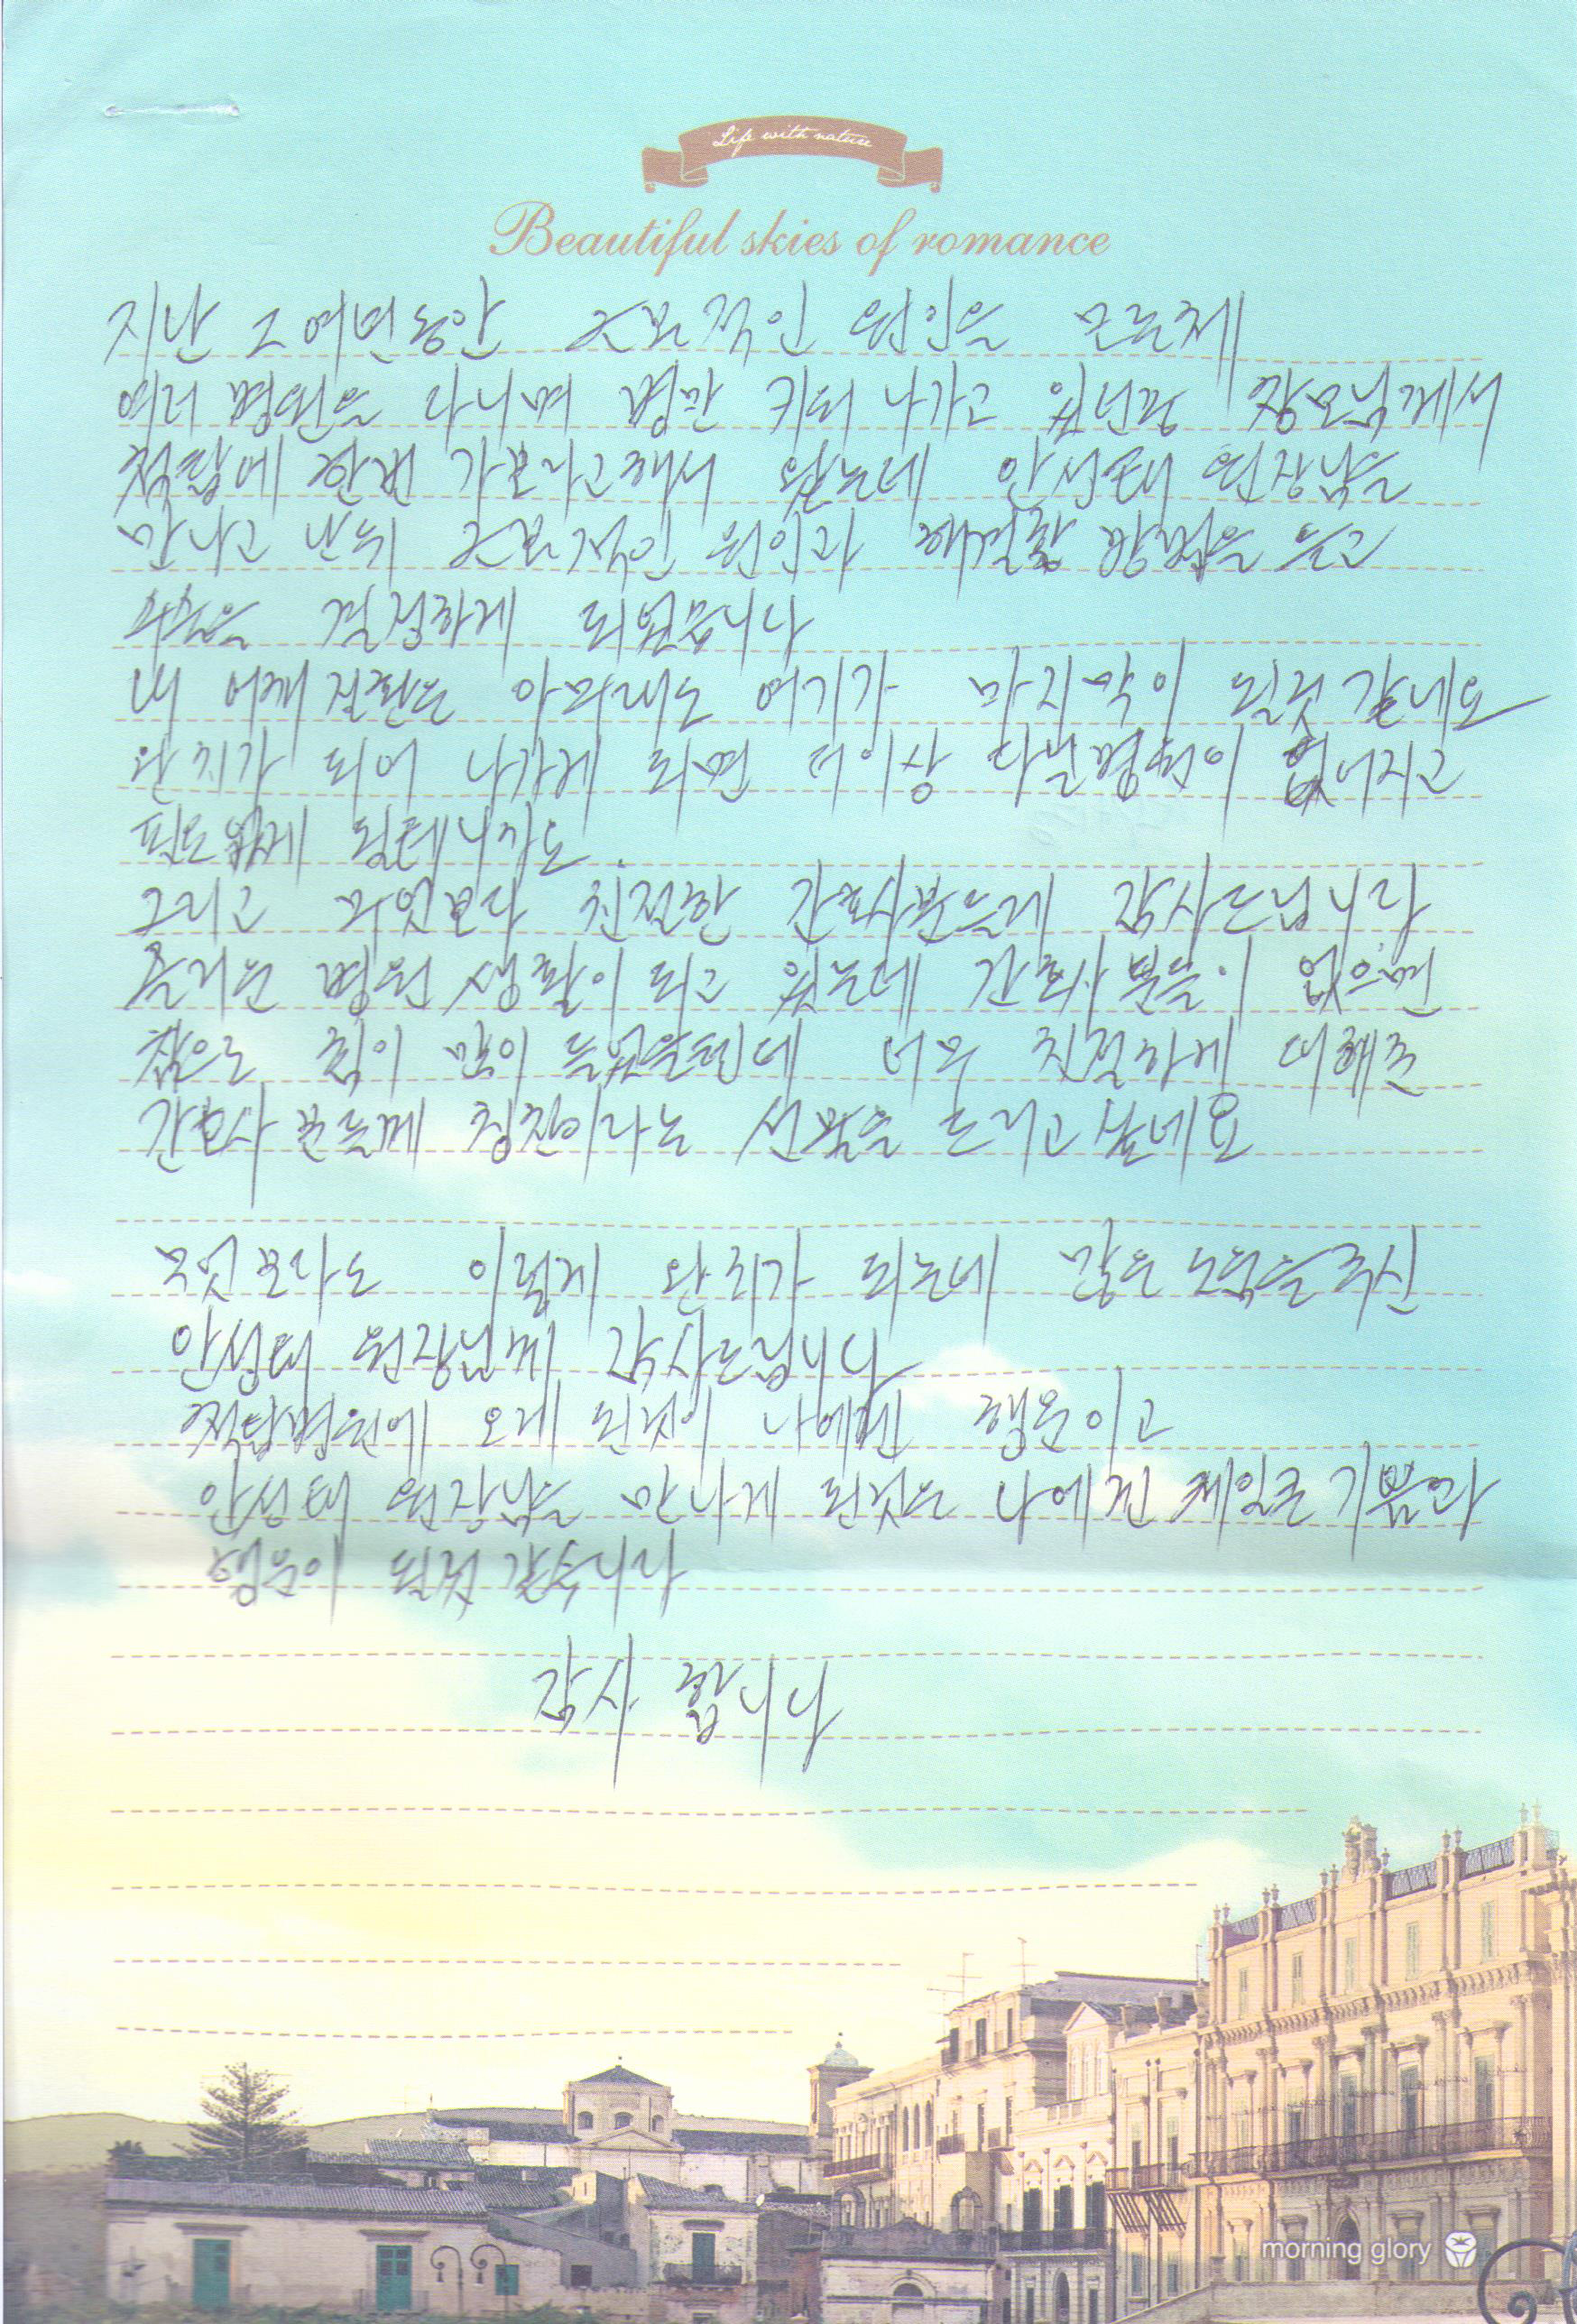 Life with nature
Beautiful skies of romance
지난 2여년동안 근본적인 원인을 모른체
여러 병원을 다니며 병만 키워 나가고 있던중 장모님께서
척탑에 한번 가보라고해서 왔는데 안성태 원장님을
만나고 난뒤 근본적인 원인과 해결할 방법을 듣고
수술을 결정하게 되었습니다
내 어깨 질환은 아마도 여기가 마지막이 될것 같네요
완치가 되어 나가게 되면 더이상 다닐병원이 없어지고
필요없게 될테니까요.
그리고 무엇보다 친절한 간호사분들께 감사드립니다
병원 생활이 되고 있는데 간호사 분들이 없으면
참으로 힘이 많이 들었을텐데 너무 친절하게 대해준
간호사 분들께 칭찬이라는 선물을 드리고 싶네요
무엇보다도 이렇게 완치가 되는데 많은 도움을주신
안성태 원장님께 감사드립니다
척탑병원에 오게 된것이 나에겐 행운이고
안성태 원장님을 만나게 된것은 나에겐 제일큰 기쁨과
행운이 될것 같습니다
감사 합니다
morning glory